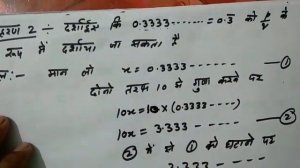 हरण 2 ÷ दर्शाईए कि 0.3333------- = 0.3̅ को p/q के
रूप में दर्शाया जा सकता है
ल:- मान लो x = 0.3333----- ①
दोनो तरफ 10 से गुणा करने पर
10x = 10 × (0.3333-----)
10x = 3.333 ----- ②
② में से ① को घटाने पर
3.333 -----